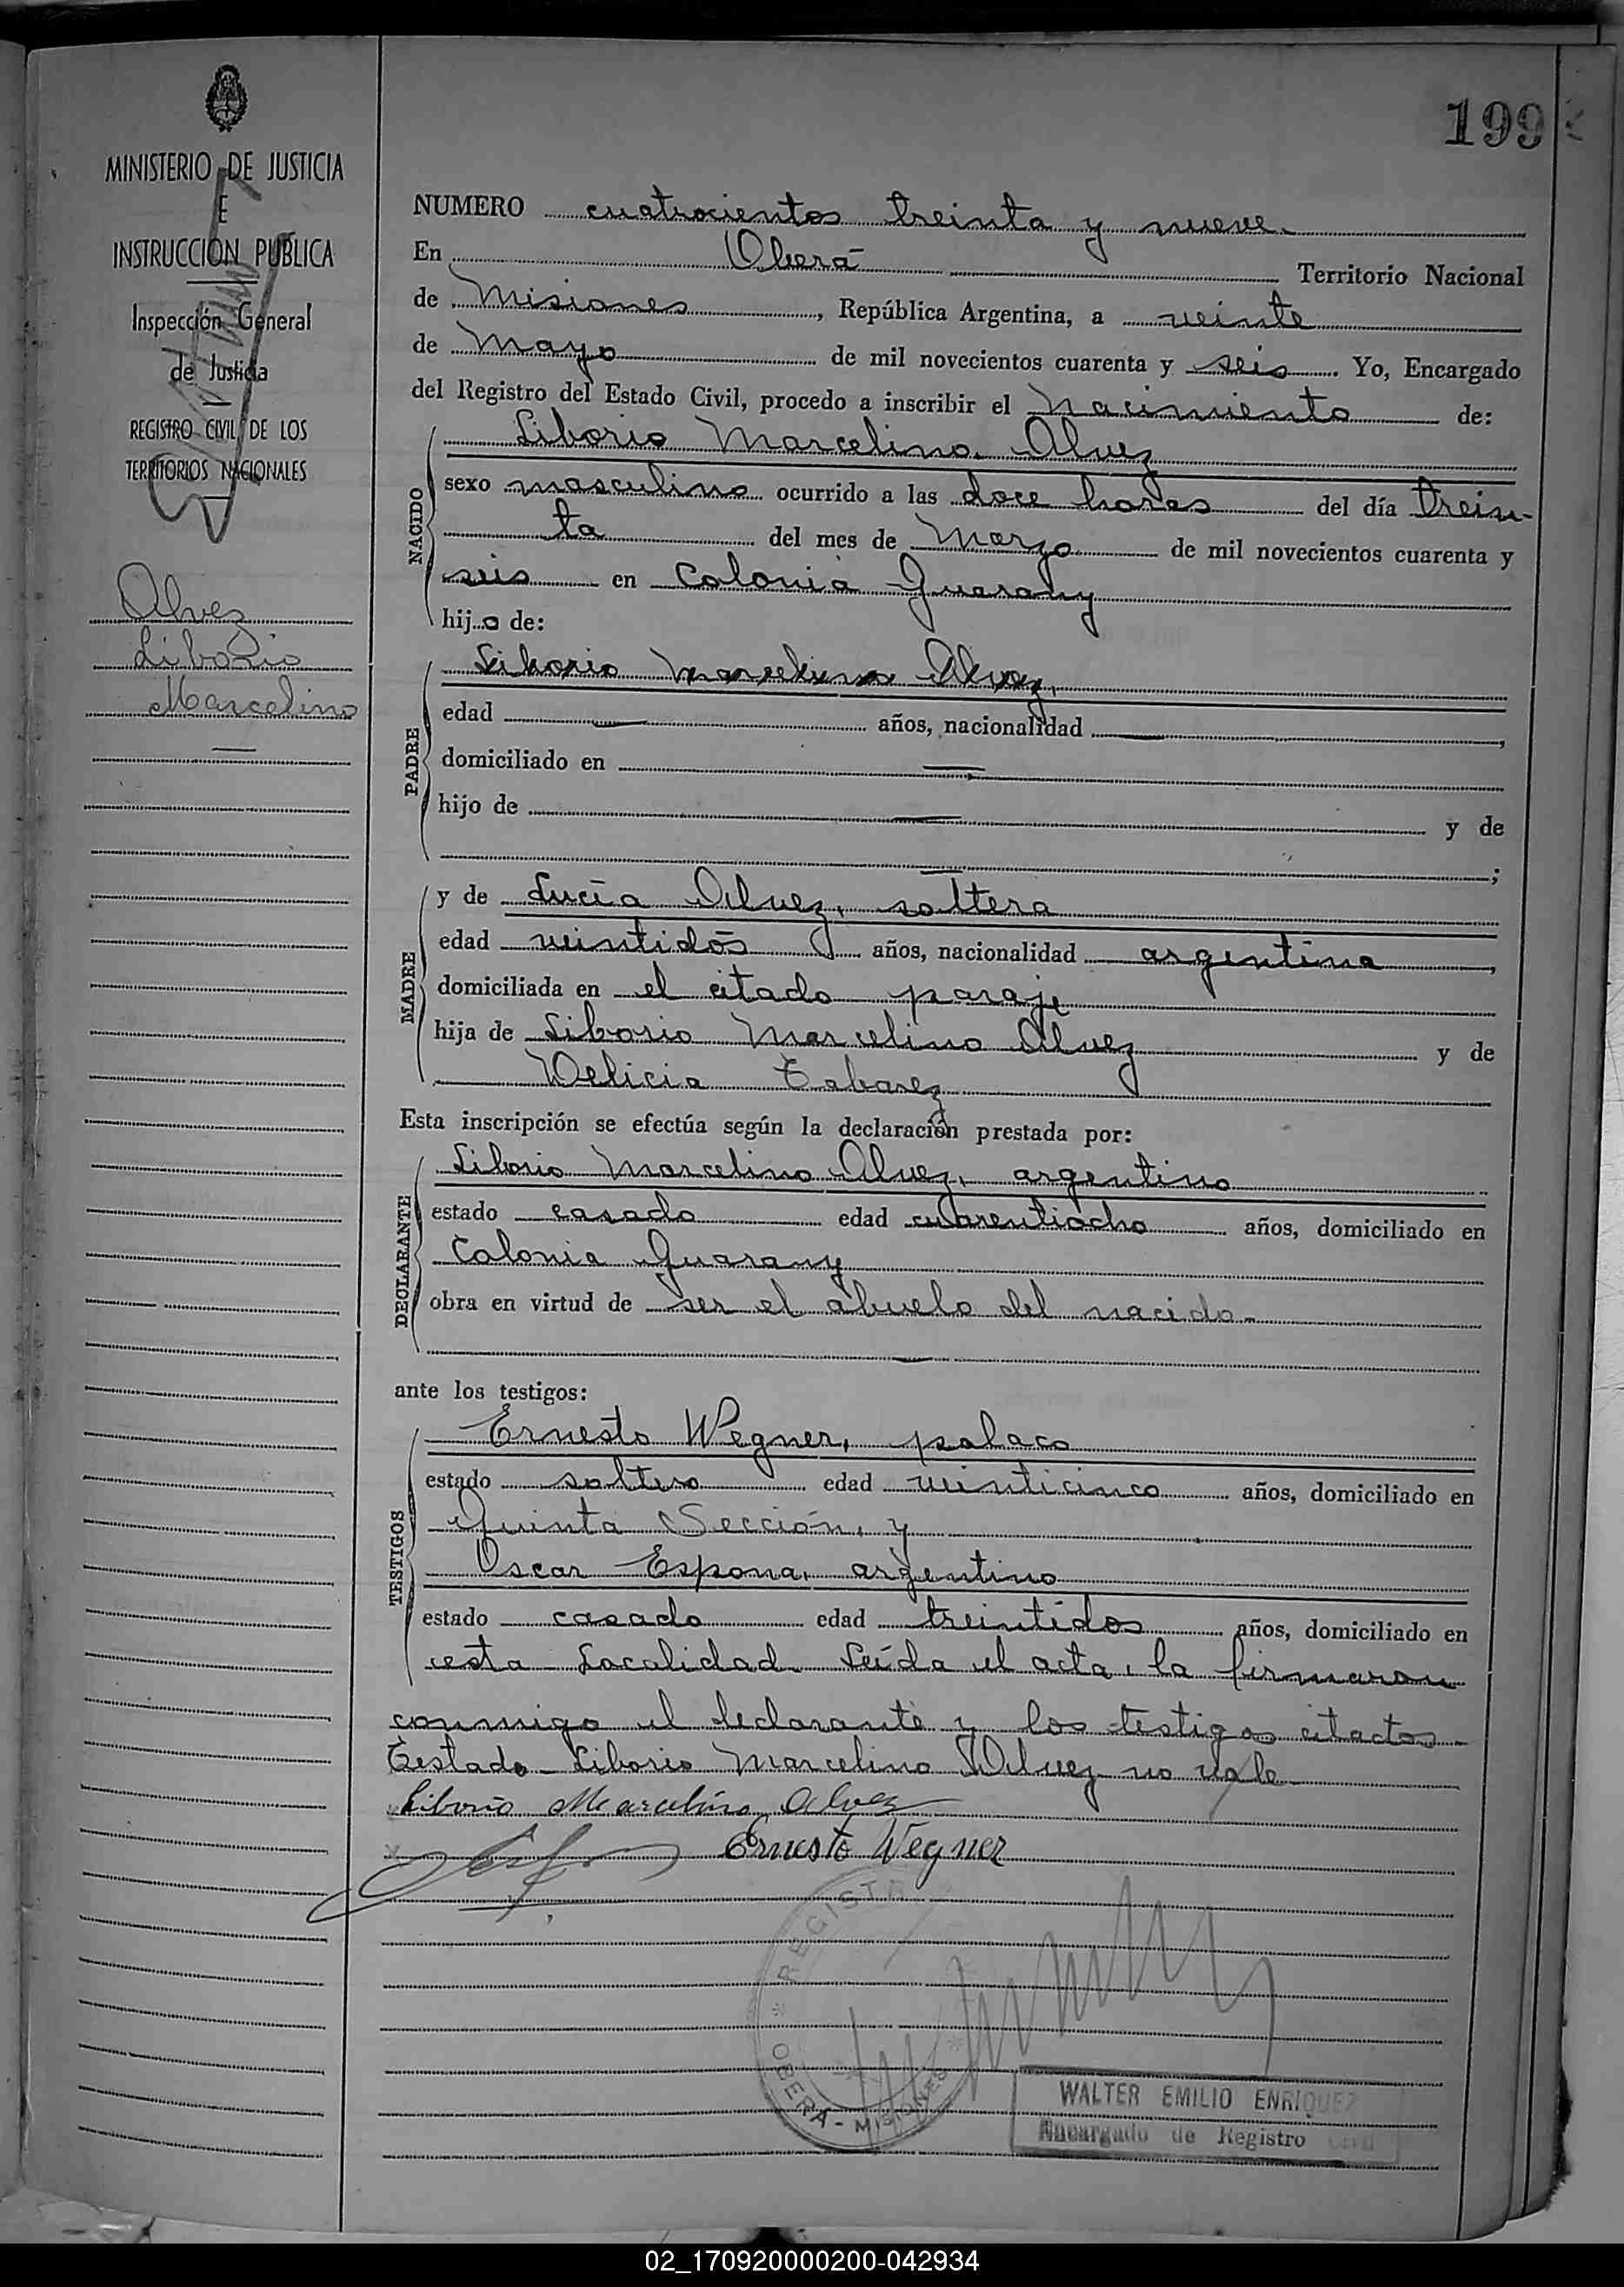 199
MINISTERIO DE JUSTICIA
E
INSTRUCCIÓN PUBLICA
Inspección General
de Justicia
REGISTRO CIVIL DE LOS
TERRITORIOS NACIONALES
Alvez
Liborio
Marcelino
NUMERO cuatrocientos treinta y nueve.
En Oberá Territorio Nacional
de Misiones, República Argentina, a veinte
de Mayo de mil novecientos cuarenta y seis. Yo, Encargado
del Registro del Estado Civil, procedo a inscribir el nacimiento de:
NACIDO
Liborio Marcelino Alvez
sexo masculino ocurrido a las doce horas del día trein-
ta del mes de Marzo de mil novecientos cuarenta y
seis en Colonia Guarany
hijo de:
PADRE
Liborio Marcelino Alvez,
edad — años, nacionalidad —,
domiciliado en —
hijo de — y de
— ;
MADRE
y de Lucía Alvez, soltera
edad veintidós años, nacionalidad argentina,
domiciliada en el citado paraje
hija de Liborio Marcelino Alvez y de
Delicia Tabarez
Esta inscripción se efectúa según la declaración prestada por:
DECLARANTE
Liborio Marcelino Alvez, argentino
estado casado edad cuarentiocho años, domiciliado en
Colonia Guarany
obra en virtud de ser el abuelo del nacido.-
—
ante los testigos:
TESTIGOS
Ernesto Wegner, polaco
estado soltero edad veinticinco años, domiciliado en
Quinta Sección, y
Oscar Espona, argentino
estado casado edad treintidos años, domiciliado en
esta Localidad. Leída el acta, la firmaron
conmigo el declarante y los testigos citados.-
Testado - Liborio Marcelino Alvez - no vale
Liborio Marcelino Alvez
Ernesto Wegner
REGISTR
OBERÁ - MISIONES
WALTER EMILIO ENRIQUEZ
Encargado de Registro Civil
02_170920000200-042934